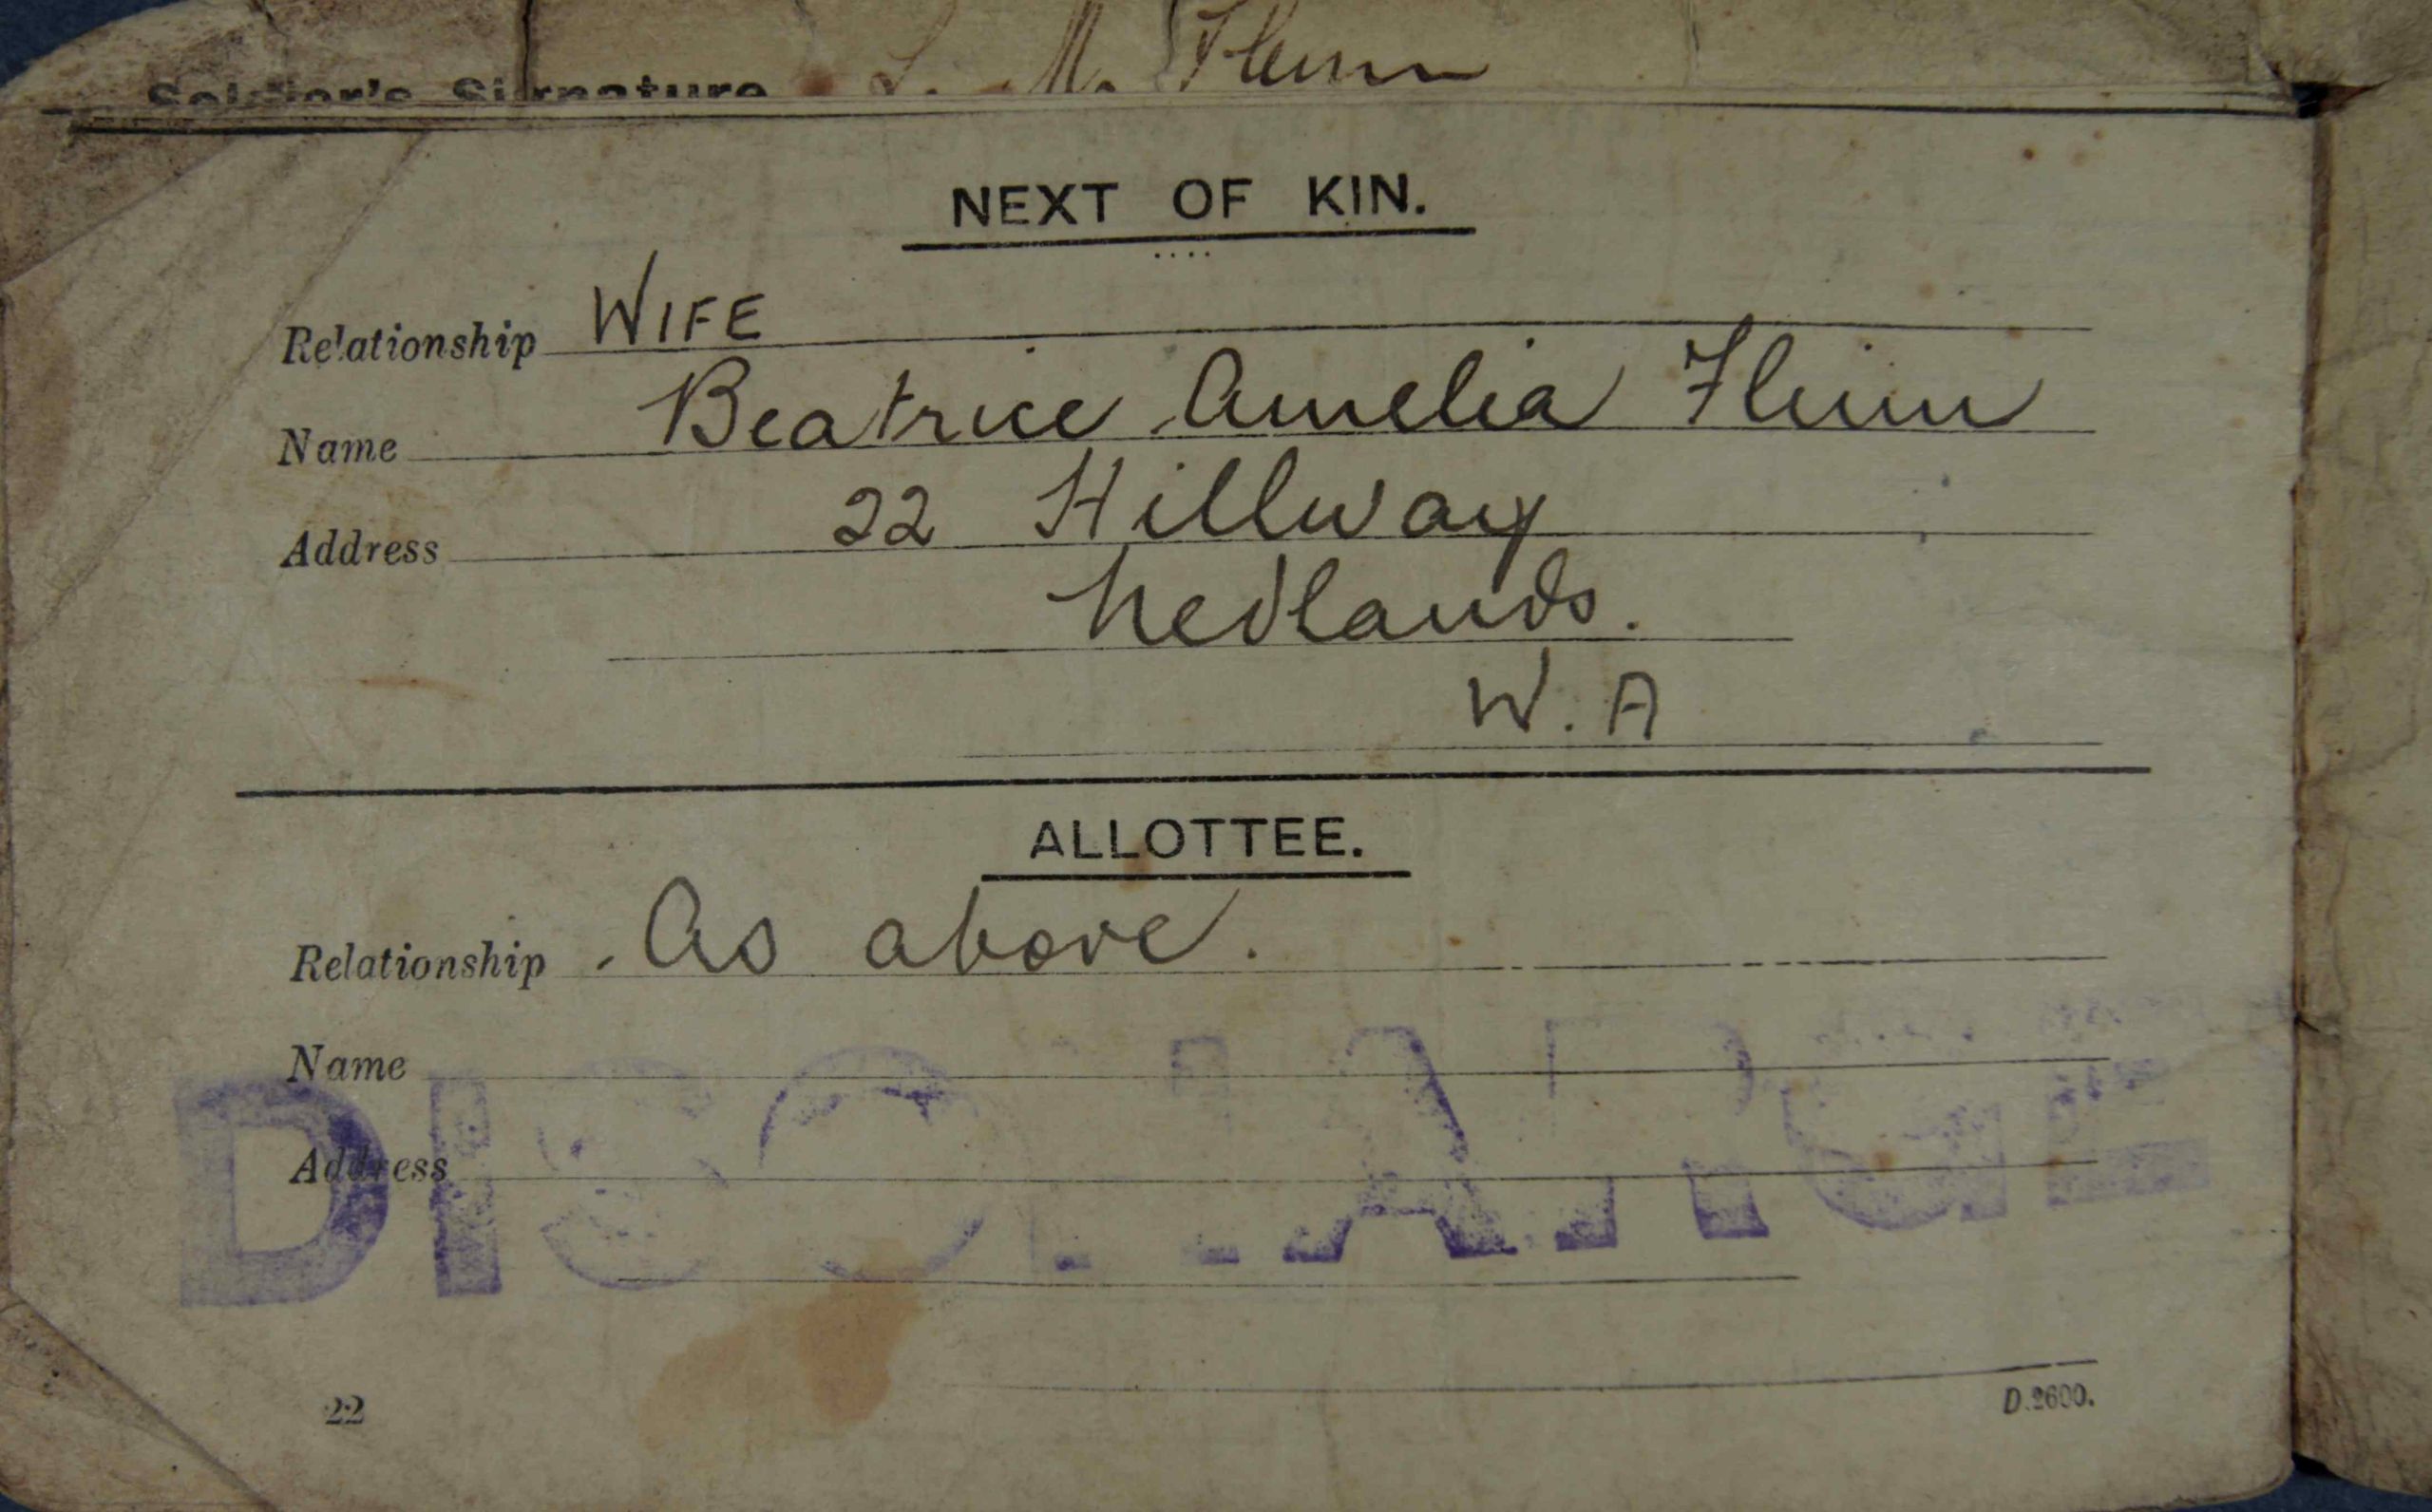 Soldier's Signature L. M. Flinn
NEXT OF KIN.
Relationship WIFE
Name Beatrice Amelia Flinn
Address 22 Hillway
Nedlands.
W.A
ALLOTTEE.
Relationship As above.
Name
Address
DISCHARGE
22
D.2600.